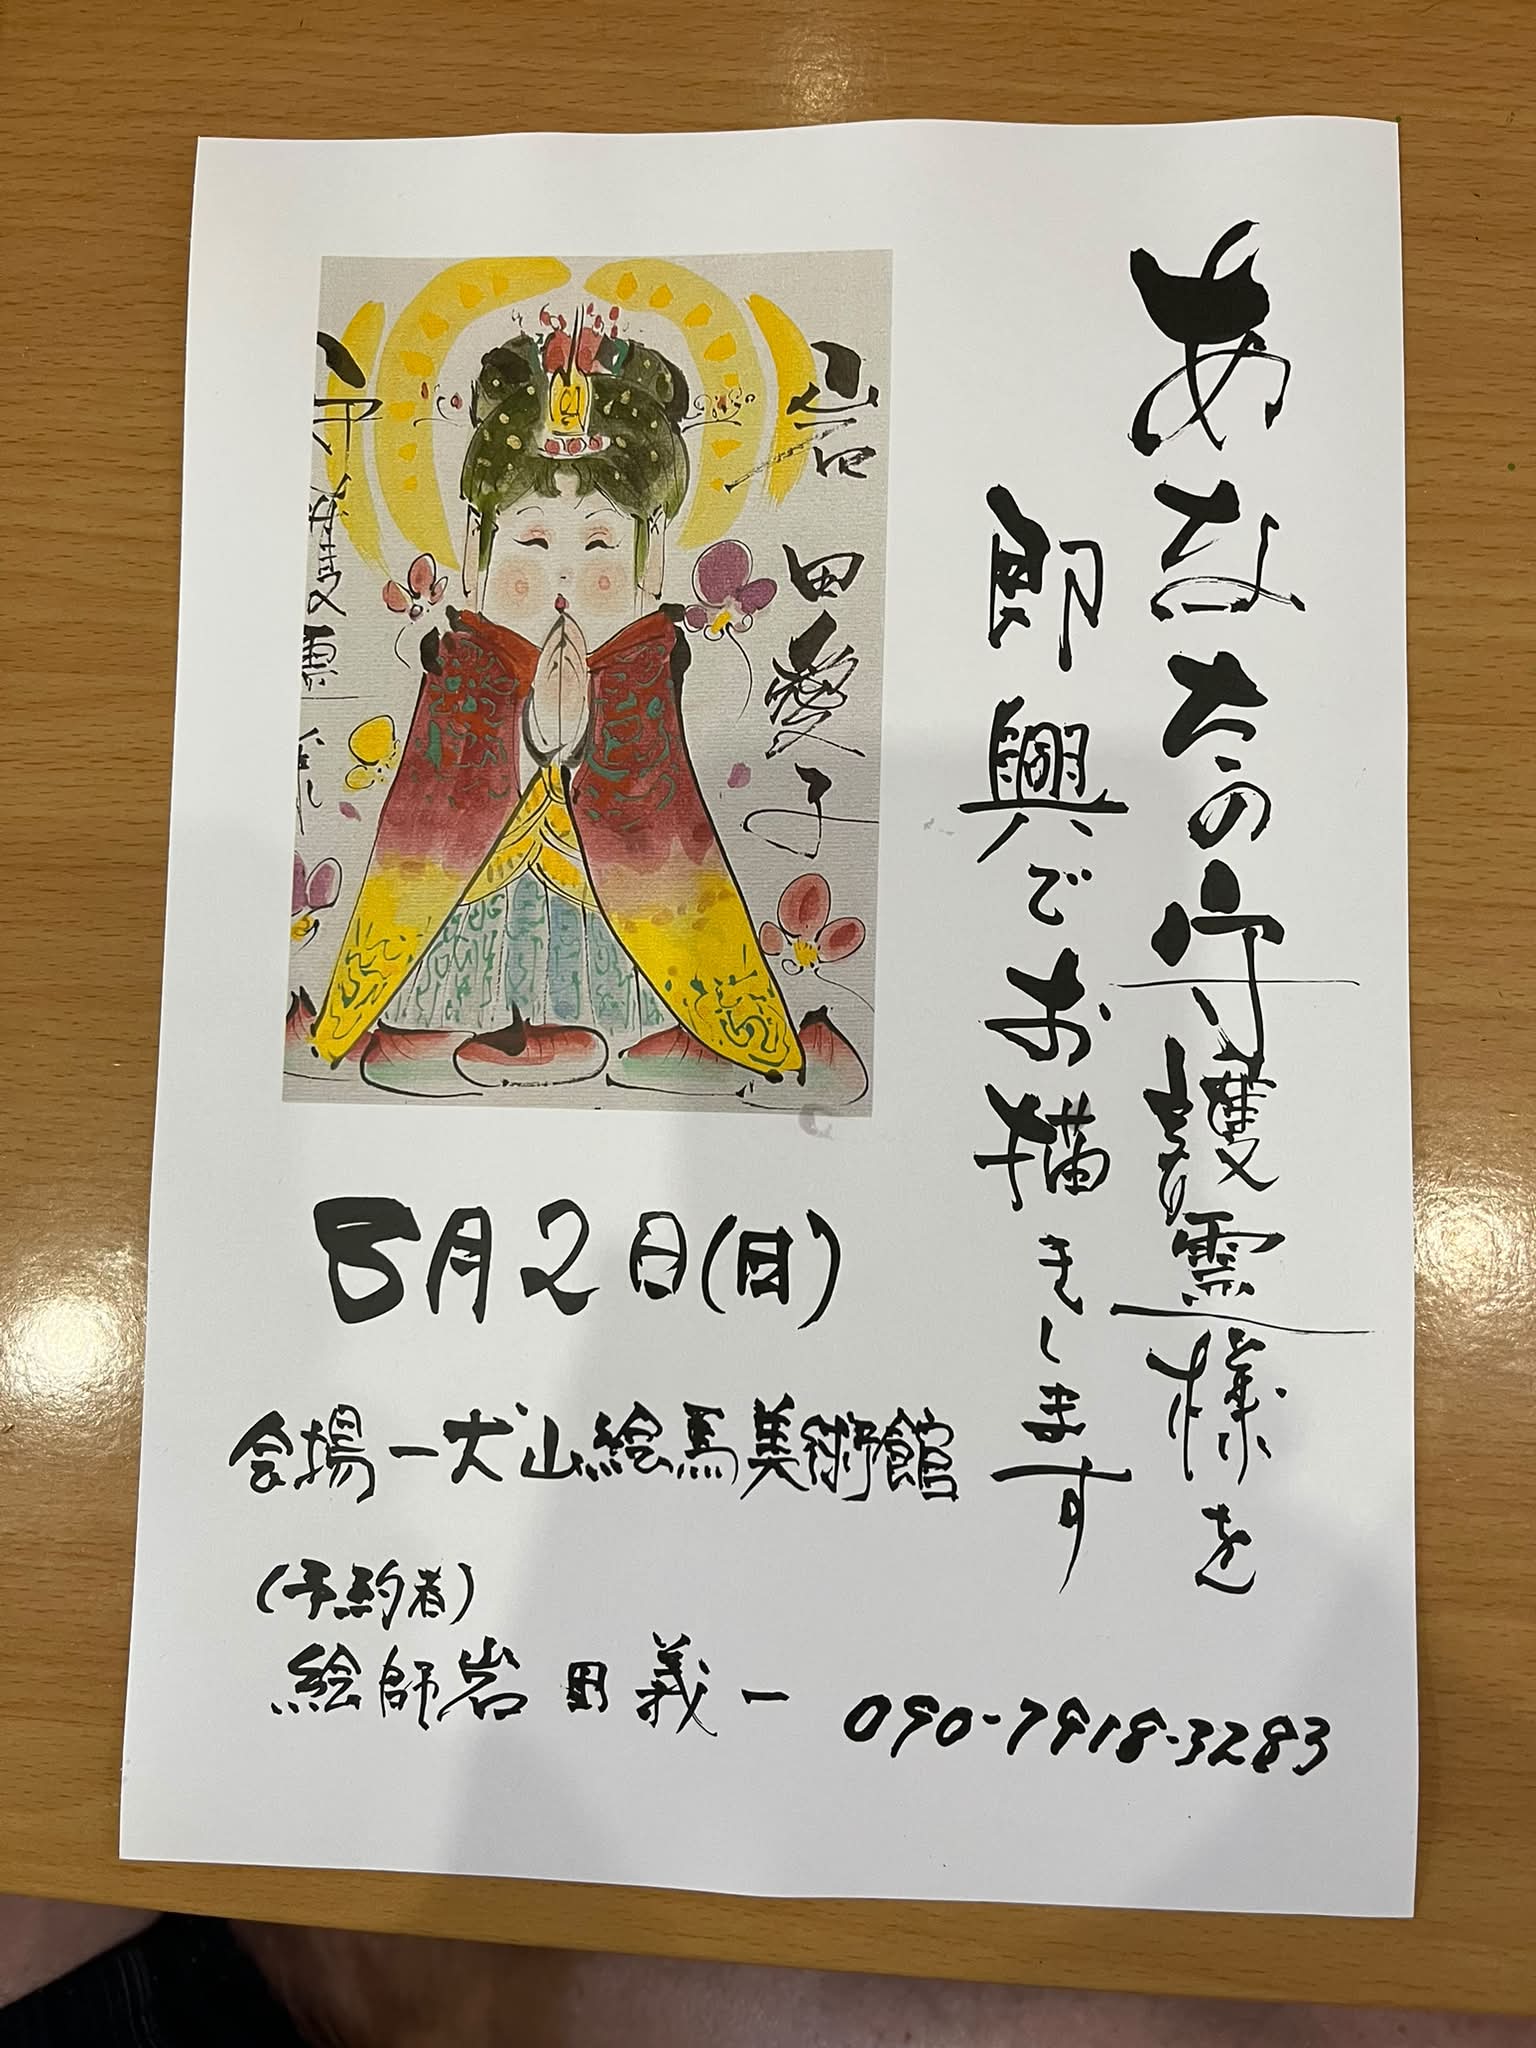 あなたの守護霊様を
即興でお描きします
岩田愛子
守護霊様
8月2日(日)
会場ー犬山絵馬美術館
(予約者)
絵師岩田義一 090-7918-3283